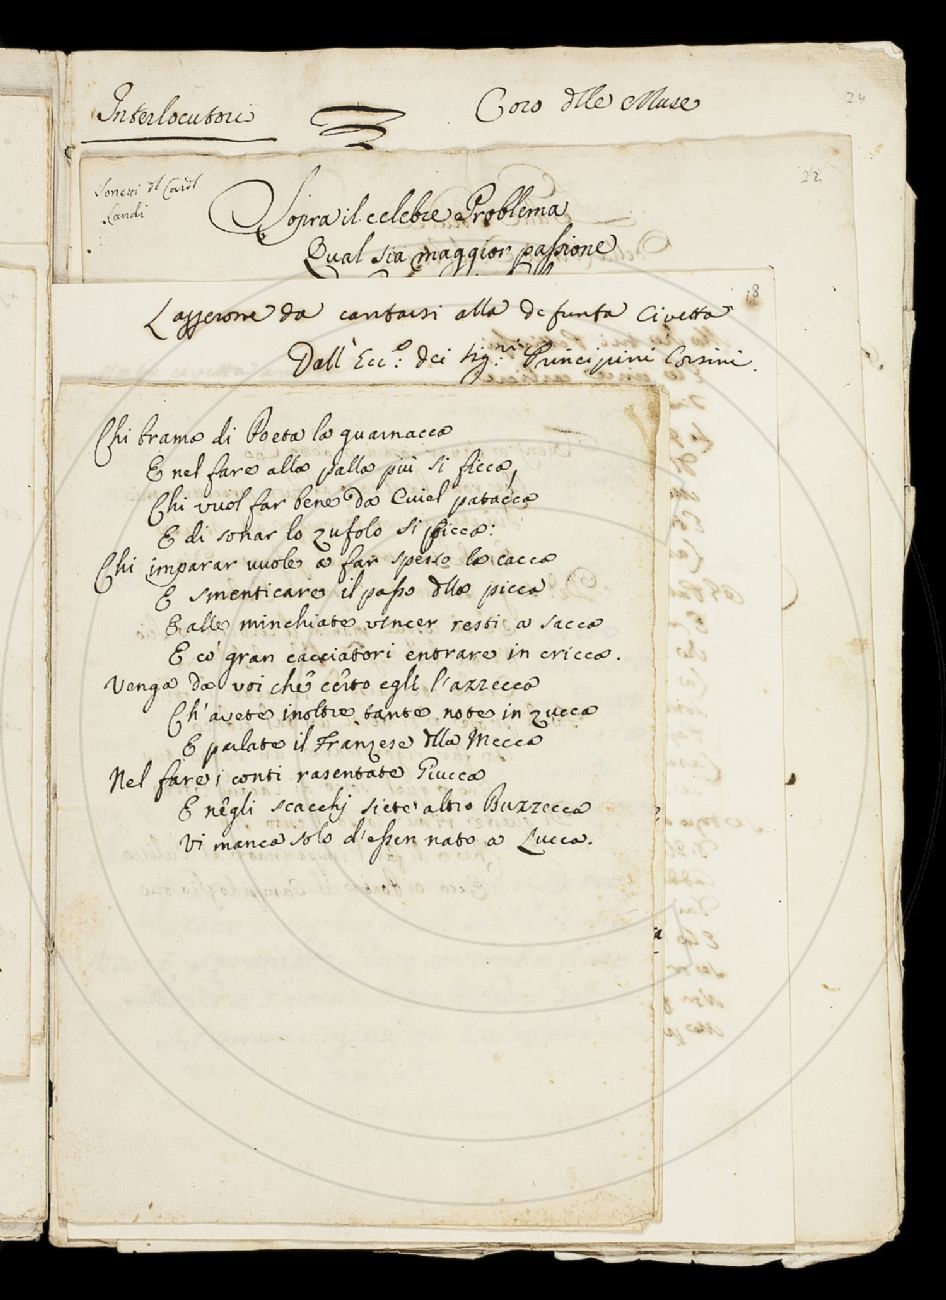 24
Interlocutori Coro dlle Muse
22
Sonetti dl Cardl
Landi
Sopra il celebre Problema
Qual sia maggior passione
18
da cantarsi alla defunta Civetta
Dall' Ecc.º: dei Sig.ri Principini Corsini.
Chi brama di Poeta la guarnacca
E nel fare alla palla più si ficca,
Chi vuol far bene da Cuiel patacca
E di sonar lo zufolo si picca:
Chi imparar vuole a far spesso la cacca
E smenticare il passo dlla picca
E alle minchiate vincer resti a sacca
E co' gran cacciatori entrare in cricca.
Venga da voi che certo egli l'azzecca
Ch'avete inoltre tante note in zucca
E parlate il Franzese dlla Mecca
Nel fare i conti rasentate Giucca
E negli scacchj siete altro Buzzecca
Vi manca solo d'essen nato a Lucca.